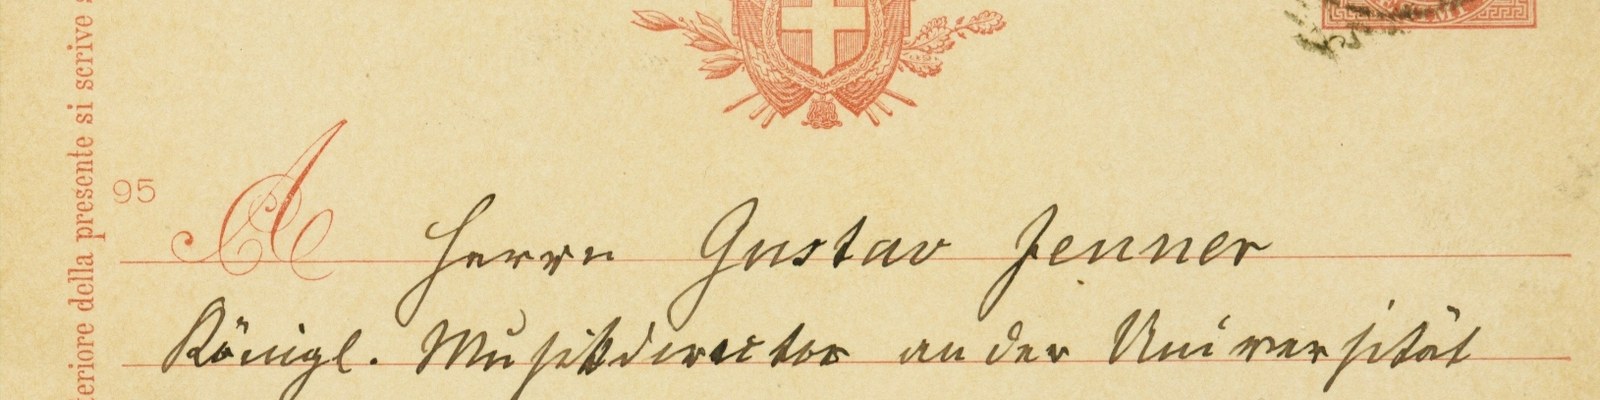 teriore della presente si scrive s
95
A Herrn Gustav Jenner
Königl. Musikdirector an der Universität